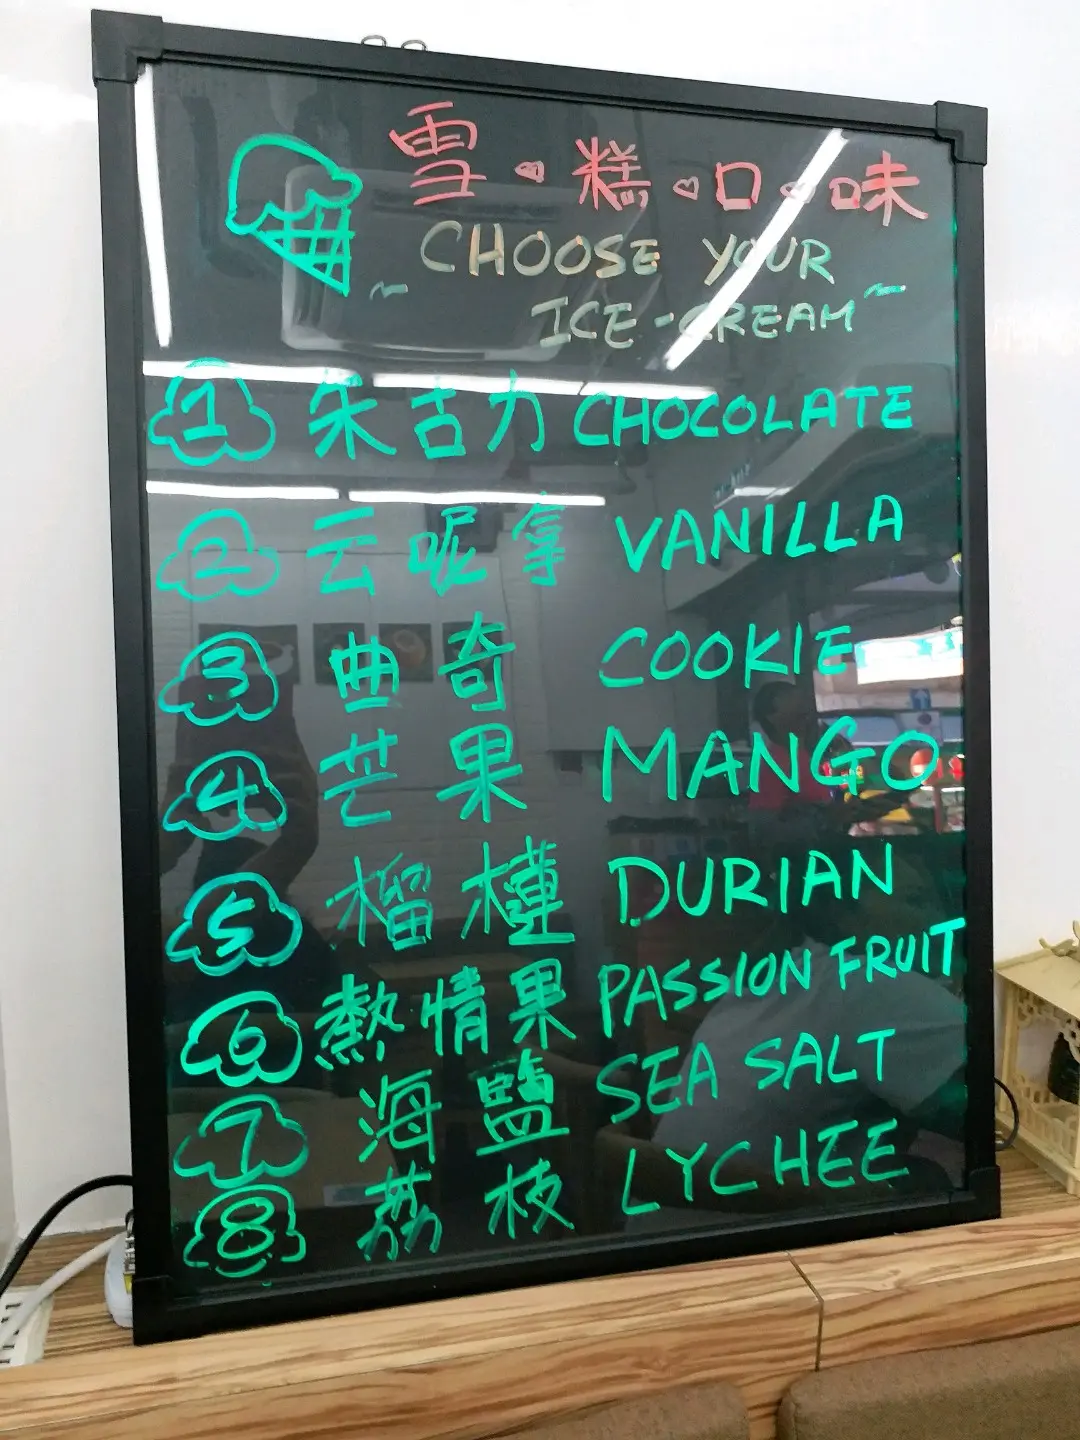 雪糕口味
CHOOSE YOUR
~ ICE-CREAM ~
1 朱古力 CHOCOLATE
2 云呢拿 VANILLA
3 曲奇 COOKIE
4 芒果 MANGO
5 榴槤 DURIAN
6 熱情果 PASSION FRUIT
7 海鹽 SEA SALT
8 荔枝 LYCHEE